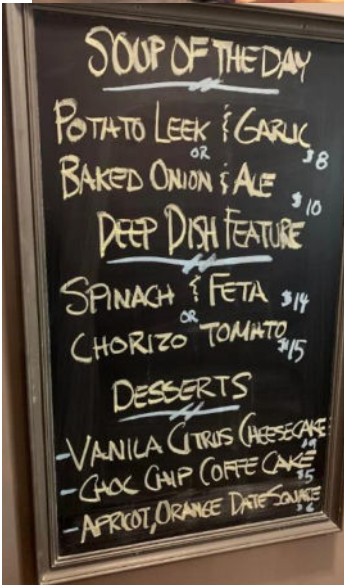 SOUP OF THE DAY
POTATO LEEK & GARLIC
OR $8
BAKED ONION & ALE
$10
DEEP DISH FEATURE
SPINACH & FETA $14
OR
CHORIZO TOMATO
$15
DESSERTS
-VANILA CITRUS CHEESECAKE
$9
-CHOC CHIP COFFE CAKE
$5
-APRICOT, ORANGE DATE SQUARE
$6